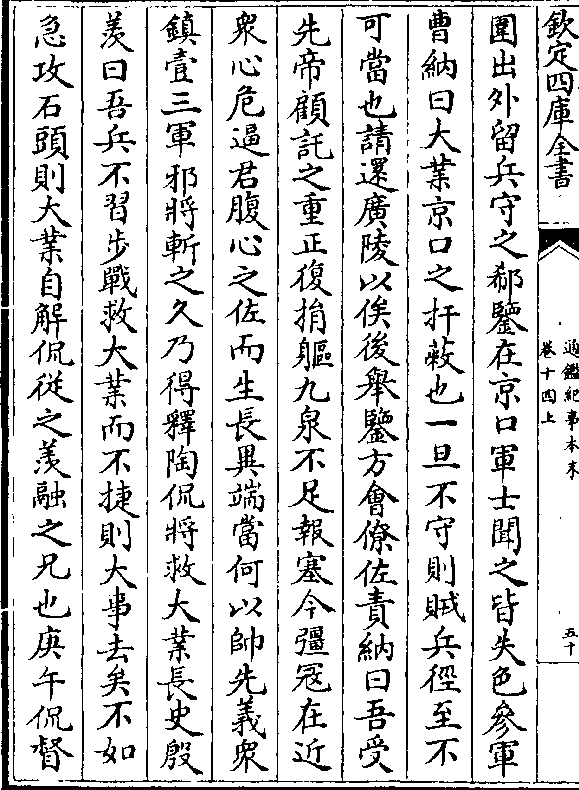 欽定四庫全書
通鑑紀事本末
卷十四上
五十
圍出外留兵守之郗鑒在京口軍士聞之皆失色參軍
曹納曰大業京口之扞蔽也一旦不守則賊兵徑至不
可當也請還廣陵以俟後舉鑒方會僚佐責納曰吾受
先帝顧託之重正復捐軀九泉不足報塞今彊冦在近
衆心危逼君腹心之佐而生長異端當何以帥先義衆
鎮壹三軍邪將斬之久乃得釋陶侃將救大業長史殷
羨曰吾兵不習步戰救大業而不捷則大事去矣不如
急攻石頭則大業自解侃從之羨融之兄也庚午侃督